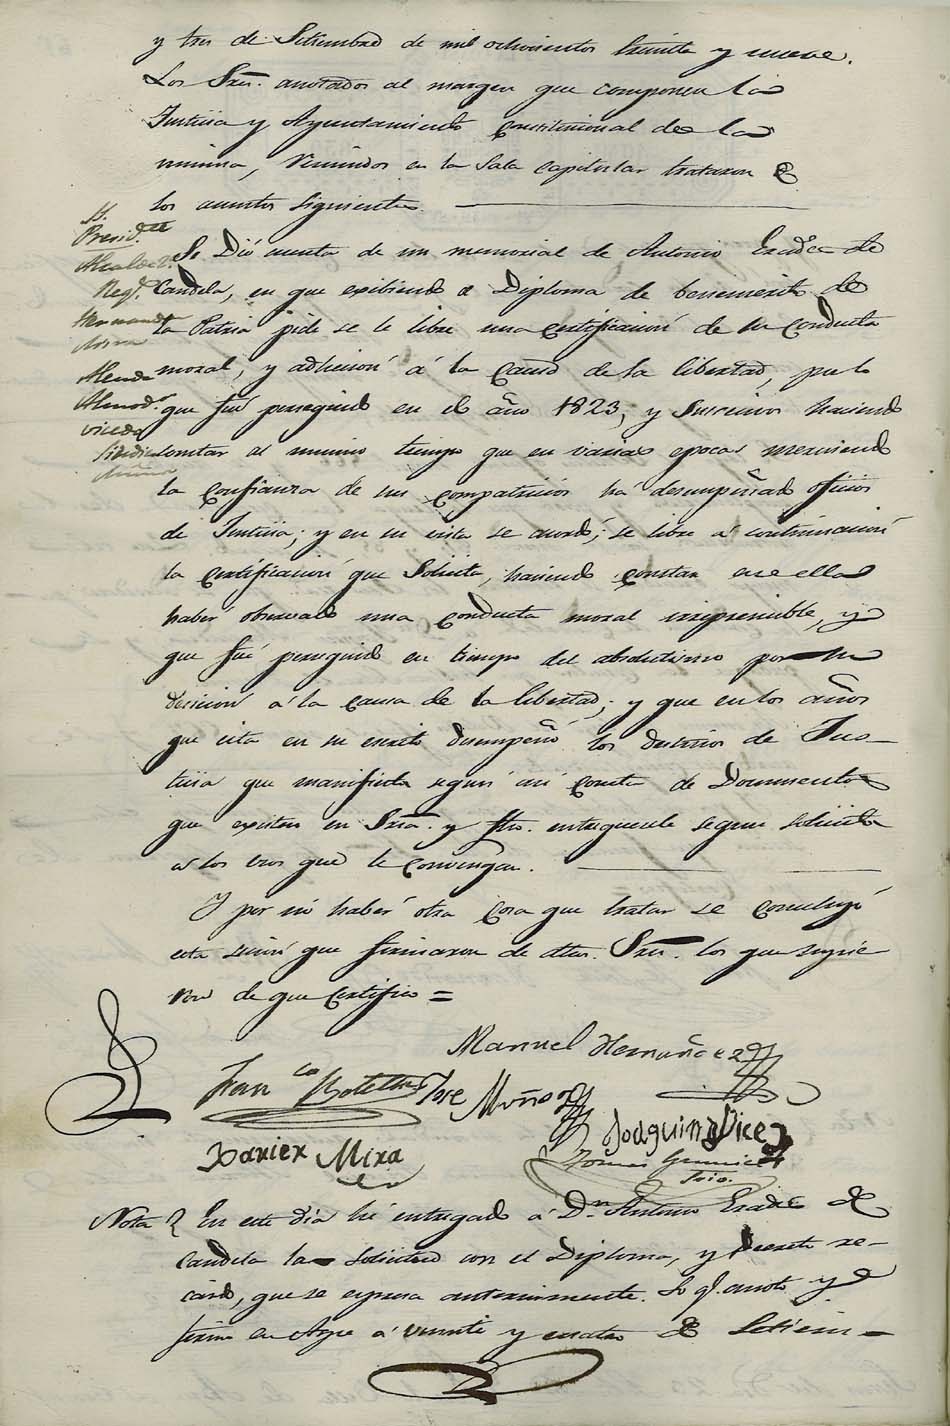 y tres de Setiembre de mil ochocientos treinta y nueve.
Los Sres. anotados al margen que componen la
Justicia y Ayuntamiento constitucional de la
misma, reunidos en la Sala capitular trataron
los asuntos siguientes.
S.
Presid.te
Alcalde 2.
Reg.s
Hernandez
Mira
Almodo.
Sindico
Se Dió cuenta de un memorial de Antonio de
Candela, en que exibiendo el Diploma de benemerito de
la Patria pide se le libre una certificacion de su conducta
moral, y adhesion á la causa de la libertad, por lo
que fué perseguido en el año 1823, y haciendo
constar al mismo tiempo que en varias epocas mereciendo
la confianza de sus compatricios ha desempeñado oficios
de Justicia; y en su vista se acordó, se libre á continuacion
la certificacion que Solicita, haciendo constar en ella
haber observado una conducta moral irreprensible, y
que fué perseguido en tiempo del absolutismo por su
decision á la causa de la libertad; y que en los años
que cita en su escrito desempeñó los destinos de Jus-
ticia que manifiesta segun asi consta de Documentos
que existen en Sria. y fho. entreguesele segun solicita
a los usos que le convengan.
Y por no haber otra cosa que tratar se concluyó
esta sesion que firmaron de dhos. Sres. los que supie
ron de que certifico =
Manuel Hernandez
Fran.co Botella Jose Muñoz
Joaquin Vicedo
Xavier Mira
Tomas
Srio.
Nota En este dia hé entregado á D.n Antonio de
Candela la solicitud con el Diploma, y decreto re-
caido, que se espresa anteriormente. Lo q.e anoto y
firmo en Aspe á veinte y cuatro de Setiem=